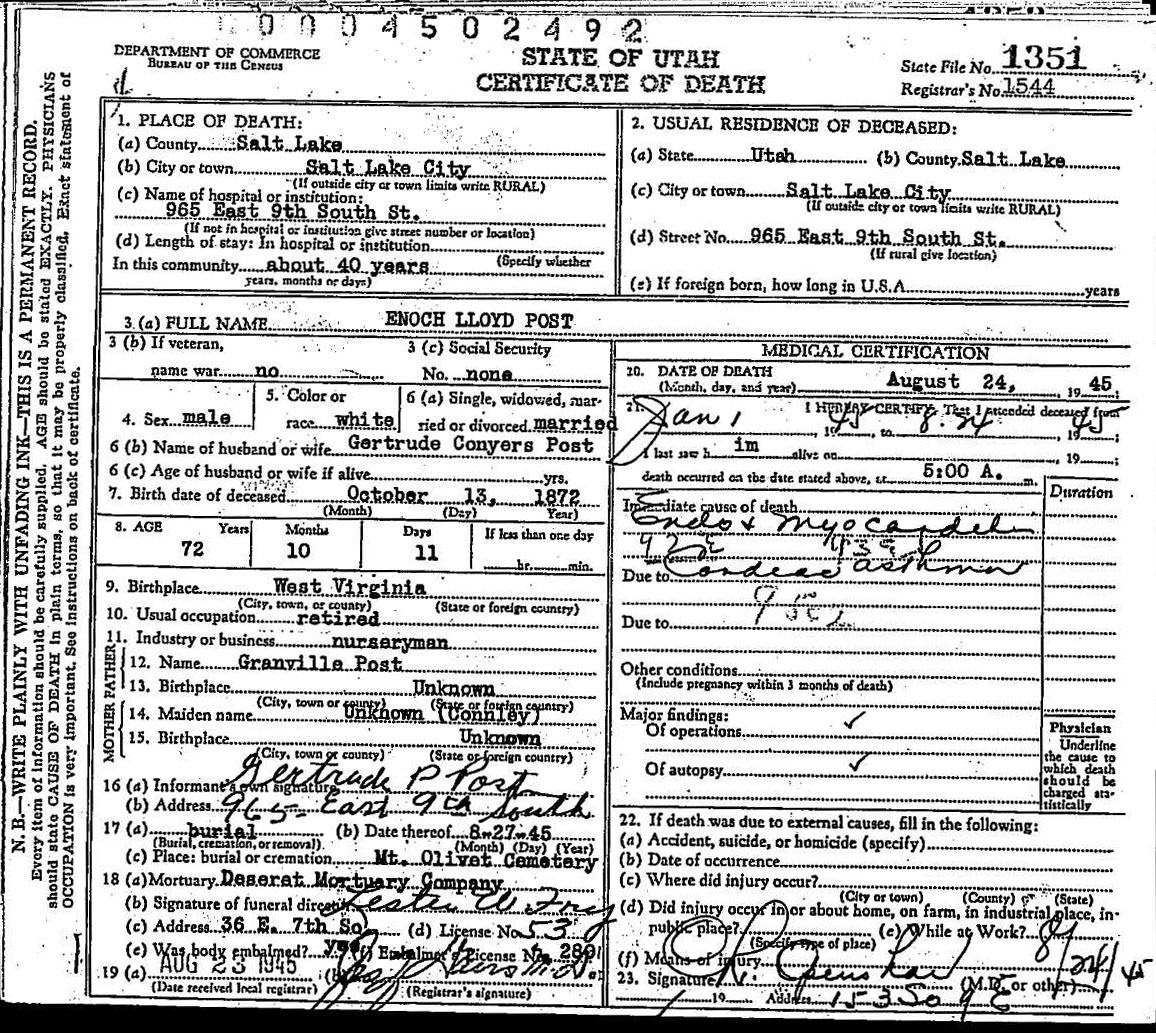 0 0 0 4 5 0 2 4 9 2
DEPARTMENT OF COMMERCE
BUREAU OF THE CENSUS
STATE OF UTAH
CERTIFICATE OF DEATH
State File No. 1351
Registrar's No. 1544
N. B.—WRITE PLAINLY WITH UNFADING INK—THIS IS A PERMANENT RECORD.
Every item of information should be carefully supplied. AGE should be stated EXACTLY. PHYSICIANS
should state CAUSE OF DEATH in plain terms, so that it may be properly classified. Exact statement of
OCCUPATION is very important. See instructions on back of certificate.
1. PLACE OF DEATH:
(a) County Salt Lake
(b) City or town Salt Lake City
(If outside city or town limits write RURAL)
(c) Name of hospital or institution:
965 East 9th South St.
(If not in hospital or institution give street number or location)
(d) Length of stay: In hospital or institution
(Specify whether
In this community about 40 years
years, months or days)
2. USUAL RESIDENCE OF DECEASED:
(a) State Utah (b) County Salt Lake
(c) City or town Salt Lake City
(If outside city or town limits write RURAL)
(d) Street No. 965 East 9th South St.
(If rural give location)
(e) If foreign born, how long in U.S.A. years
3. (a) FULL NAME ENOCH LLOYD POST
3 (b) If veteran,
name war no
3 (c) Social Security
No. none
4. Sex male
5. Color or
race white
6 (a) Single, widowed, mar-
ried or divorced married
6 (b) Name of husband or wife Gertrude Conyers Post
6 (c) Age of husband or wife if alive yrs.
7. Birth date of deceased October 13, 1872
(Month) (Day) Year)
8. AGE Years Months Days If less than one day
72 10 11 hr. min.
9. Birthplace West Virginia
(City, town, or county) (State or foreign country)
10. Usual occupation retired
11. Industry or business nurseryman
FATHER
12. Name Granville Post
13. Birthplace Unknown
(City, town or county) (State or foreign country)
MOTHER
14. Maiden name Unknown (Connley)
15. Birthplace Unknown
(City, town or county) (State or foreign country)
16 (a) Informant's own signature Gertrude P Post
(b) Address 965 East 9th South
17 (a) burial (b) Date thereof 8-27-45
(Burial, cremation, or removal) (Month) (Day) (Year)
(c) Place: burial or cremation Mt. Olivet Cemetery
18 (a) Mortuary Deseret Mortuary Company
(b) Signature of funeral director Lester W
(c) Address 36 E. 7th So (d) License No. 53
(e) Was body embalmed? yes (f) Embalmer's License No. 280
19 (a) AUG 23 1945 (b)
(Date received local registrar) (Registrar's signature)
MEDICAL CERTIFICATION
20. DATE OF DEATH
(Month, day, and year) August 24, 1945
21. I HEREBY CERTIFY, That I attended deceased from
Jan 1, 1945 to 8-24, 1945;
I last saw h im alive on , 19 ;
death occurred on the date stated above, at 5:00 A. m.
Duration
Immediate cause of death
Endo &
Due to Cardiac asthma
Due to
Other conditions
(Include pregnancy within 3 months of death)
Major findings:
Of operations ✓
Of autopsy ✓
Physician
Underline
the cause to
which death
should be
charged sta-
tistically
22. If death was due to external causes, fill in the following:
(a) Accident, suicide, or homicide (specify)
(b) Date of occurrence
(c) Where did injury occur?
(City or town) (County) (State)
(d) Did injury occur in or about home, on farm, in industrial place, in-
public place? (e) While at Work?
(Specify type of place)
(f) Means of injury
23. Signature Openshaw (M.D. or other) 8/24/45
19 Address 153 So 9 E